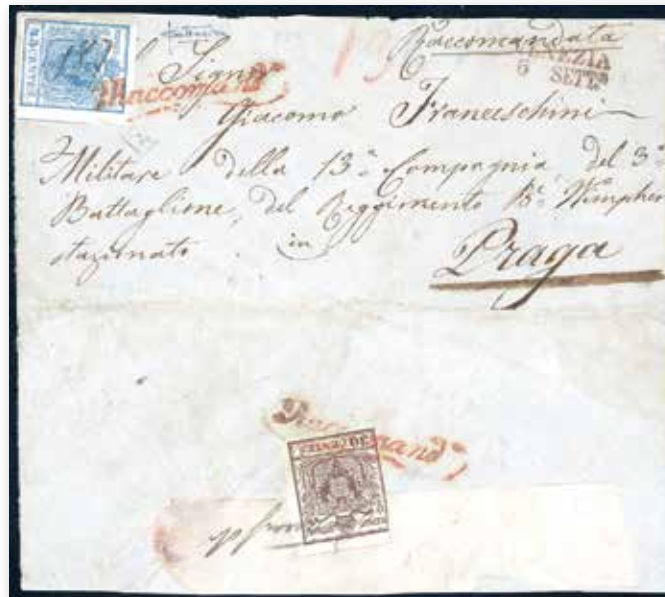 Raccomandata
VENEZIA
6 SETT.e
187
Al Signor
Raccomand.ta
13
Giacomo Franceschini
Militare della 13.a Compagnia del 3.o
Battaglione, del Reggimento B.e Wimpfen
stazionato in
Praga
Raccomand.ta